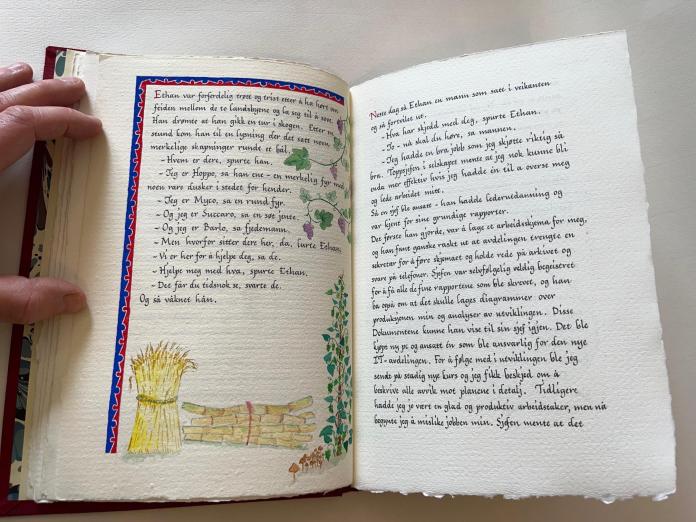 Ethan var forferdelig trøtt og trist etter å ha hørt om
feiden mellom de to landsbyene og la seg til å sove.
Han drømte at han gikk en tur i skogen. Etter en
stund kom han til en lysning der det satt noen
merkelige skapninger rundt et bål.
- Hvem er dere, spurte han.
- Jeg er Hoppo, sa han ene - en merkelig fyr med
noen rare dusker i stedet for hender.
- Jeg er Myco, sa en rund fyr.
- Og jeg er Succaro, sa en søt jente.
- Og jeg er Barlo, sa fjedemann.
- Men hvorfor sitter dere her, da, lurte Ethan.
- Vi er her for å hjelpe deg, sa de.
- Hjelpe meg med hva, spurte Ethan.
- Det får du tidsnok se, svarte de.
Og så våknet han.
Neste dag så Ethan en mann som satt i veikanten
og så fortvilet ut.
- Hva har skjedd med deg, spurte Ethan.
- Jo - nå skal du høre, sa mannen.
- Jeg hadde en bra jobb som jeg skjøtte riktig så
bra. Toppsjefen i selskapet mente at jeg nok kunne bli
enda mer effektiv hvis jeg hadde én til å overse meg
og lede arbeidet mitt.
Så en sjef ble ansatt - han hadde lederutdanning og
var kjent for sine grundige rapporter.
Det første han gjorde, var å lage et arbeidsskjema for meg,
og han fant ganske raskt ut at avdelingen trengte en
sekretær for å føre skjemaet og holde rede på arkivet og
svare på telefoner. Sjefen var selvfølgelig veldig begeistret
for å få alle de fine rapportene som ble skrevet, og han
ba også om at det skulle lages diagrammer over
produksjonen min og analyser av utviklingen. Disse
Dokumentene kunne han vise til sin sjef igjen. Det ble
kjøpt ny pc og ansatt én som ble ansvarlig for den nye
IT-avdelingen. For å følge med i utviklingen ble jeg
sendt på stadig nye kurs og jeg fikk beskjed om å
beskrive alle avvik mot planene i detalj. Tidligere
hadde jeg jo vært en glad og produktiv arbeidstaker, men nå
begynte jeg å mislike jobben min. Sjefen mente at det